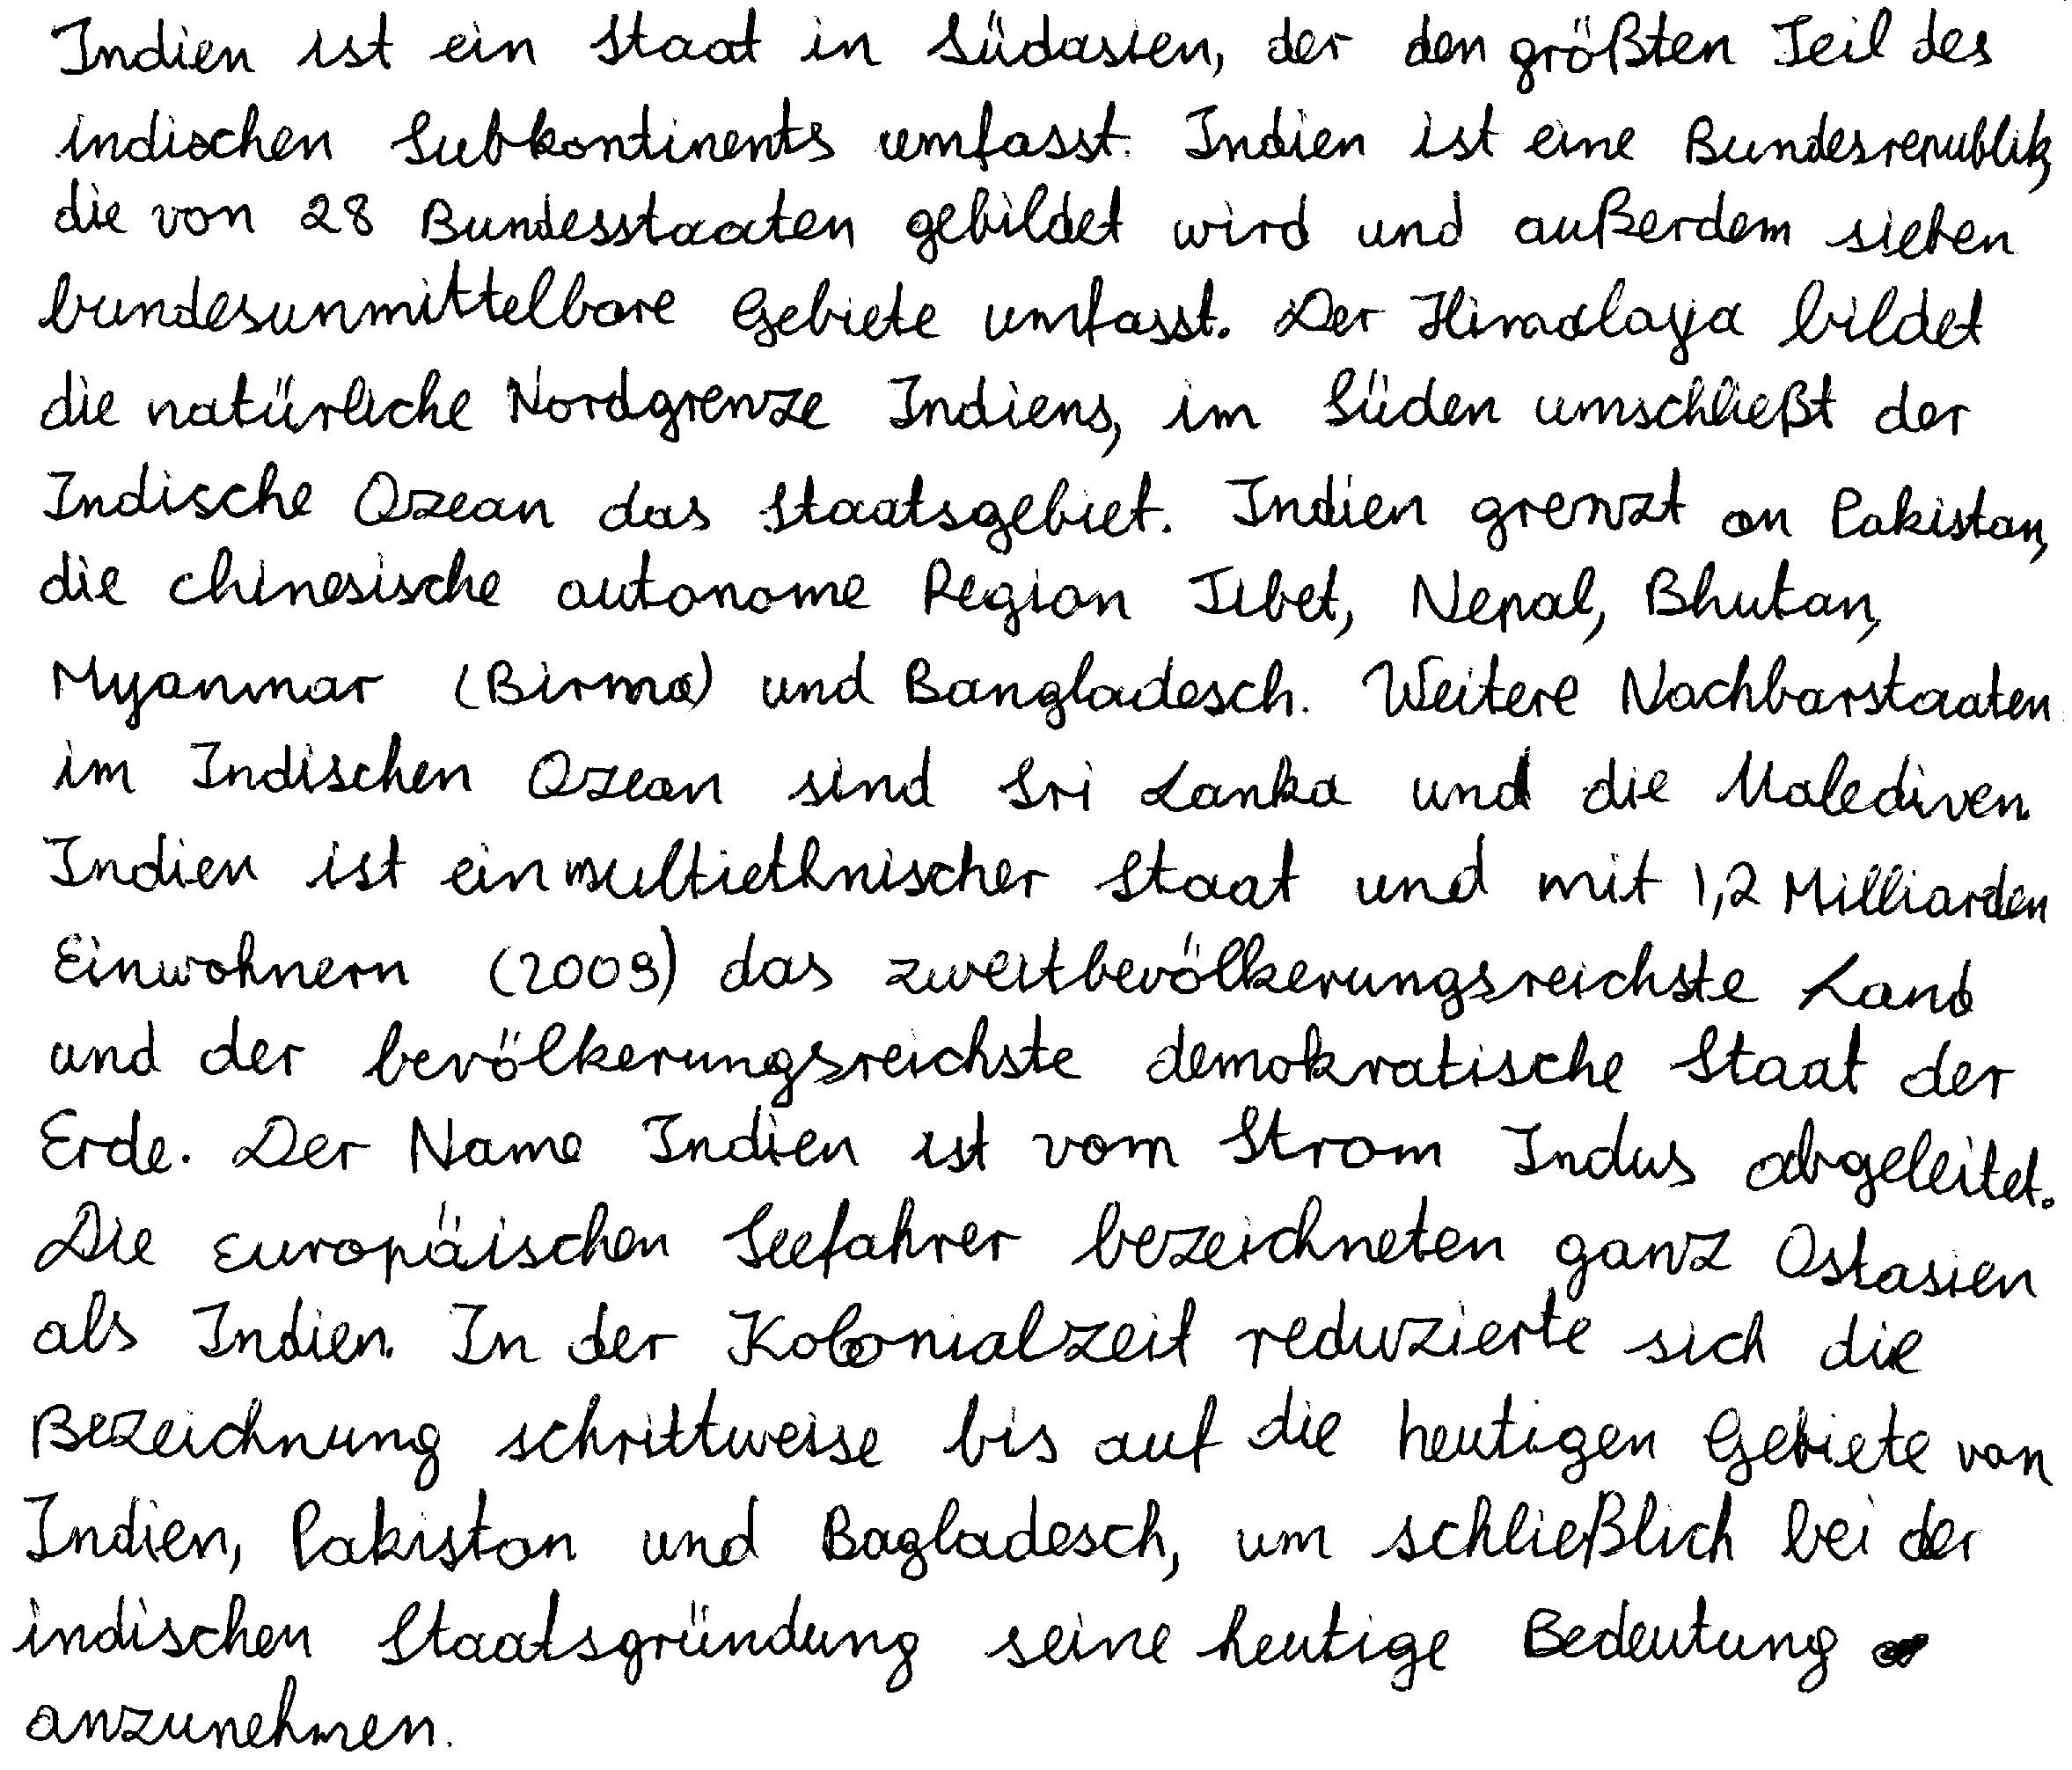 Indien ist ein Staat in Südasien, der den größten Teil des
indischen Subkontinents umfasst. Indien ist eine Bundesrepublik,
die von 28 Bundesstaaten gebildet wird und außerdem sieben
bundesunmittelbare Gebiete umfasst. Der Himalaya bildet
die natürliche Nordgrenze Indiens, im Süden umschließt der
Indische Ozean das Staatsgebiet. Indien grenzt an Pakistan,
die chinesische autonome Region Tibet, Nepal, Bhutan,
Myanmar (Birma) und Bangladesch. Weitere Nachbarstaaten
im Indischen Ozean sind Sri Lanka und die Malediven.
Indien ist ein multiethnischer Staat und mit 1,2 Milliarden
Einwohnern (2009) das zweitbevölkerungsreichste Land
und der bevölkerungsreichste demokratische Staat der
Erde. Der Name Indien ist vom Strom Indus abgeleitet.
Die europäischen Seefahrer bezeichneten ganz Ostasien
als Indien. In der Kolonialzeit reduzierte sich die
Bezeichnung schrittweise bis auf die heutigen Gebiete von
Indien, Pakistan und Bagladesch, um schließlich bei der
indischen Staatsgründung seine heutige Bedeutung
anzunehmen.